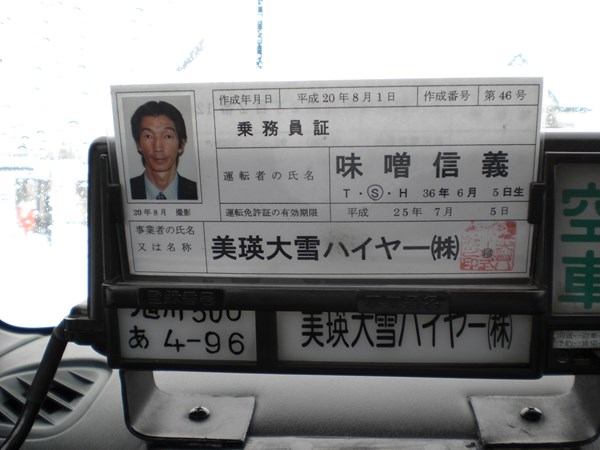 作成年月日 平成20年8月1日 作成番号 第46号
乗務員証
運転者の氏名 味噌信義
T・Ⓢ・H 36年6月5日生
20年8月 撮影
運転免許証の有効期限 平成 25年7月 5日
事業者の氏名
又は名称
美瑛大雪ハイヤー㈱
空車
旭川500
あ 4-96
美瑛大雪ハイヤー㈱